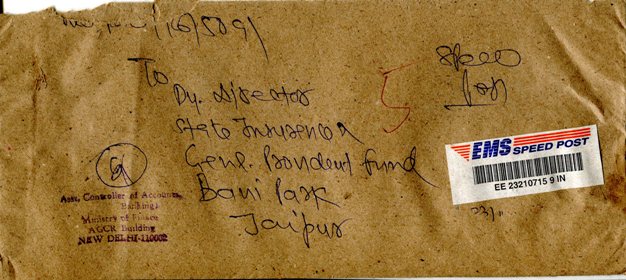 /16/5891
Speed
Post
To
Dy. Director
State Insurance
Genl. Provident Fund
Bani Park
Jaipur
5
EMS SPEED POST
EE 23210715 9 IN
Asst. Controller of Accounts,
Banking)
Ministry of Finace
AGCR Building
NEW DELHI-110002